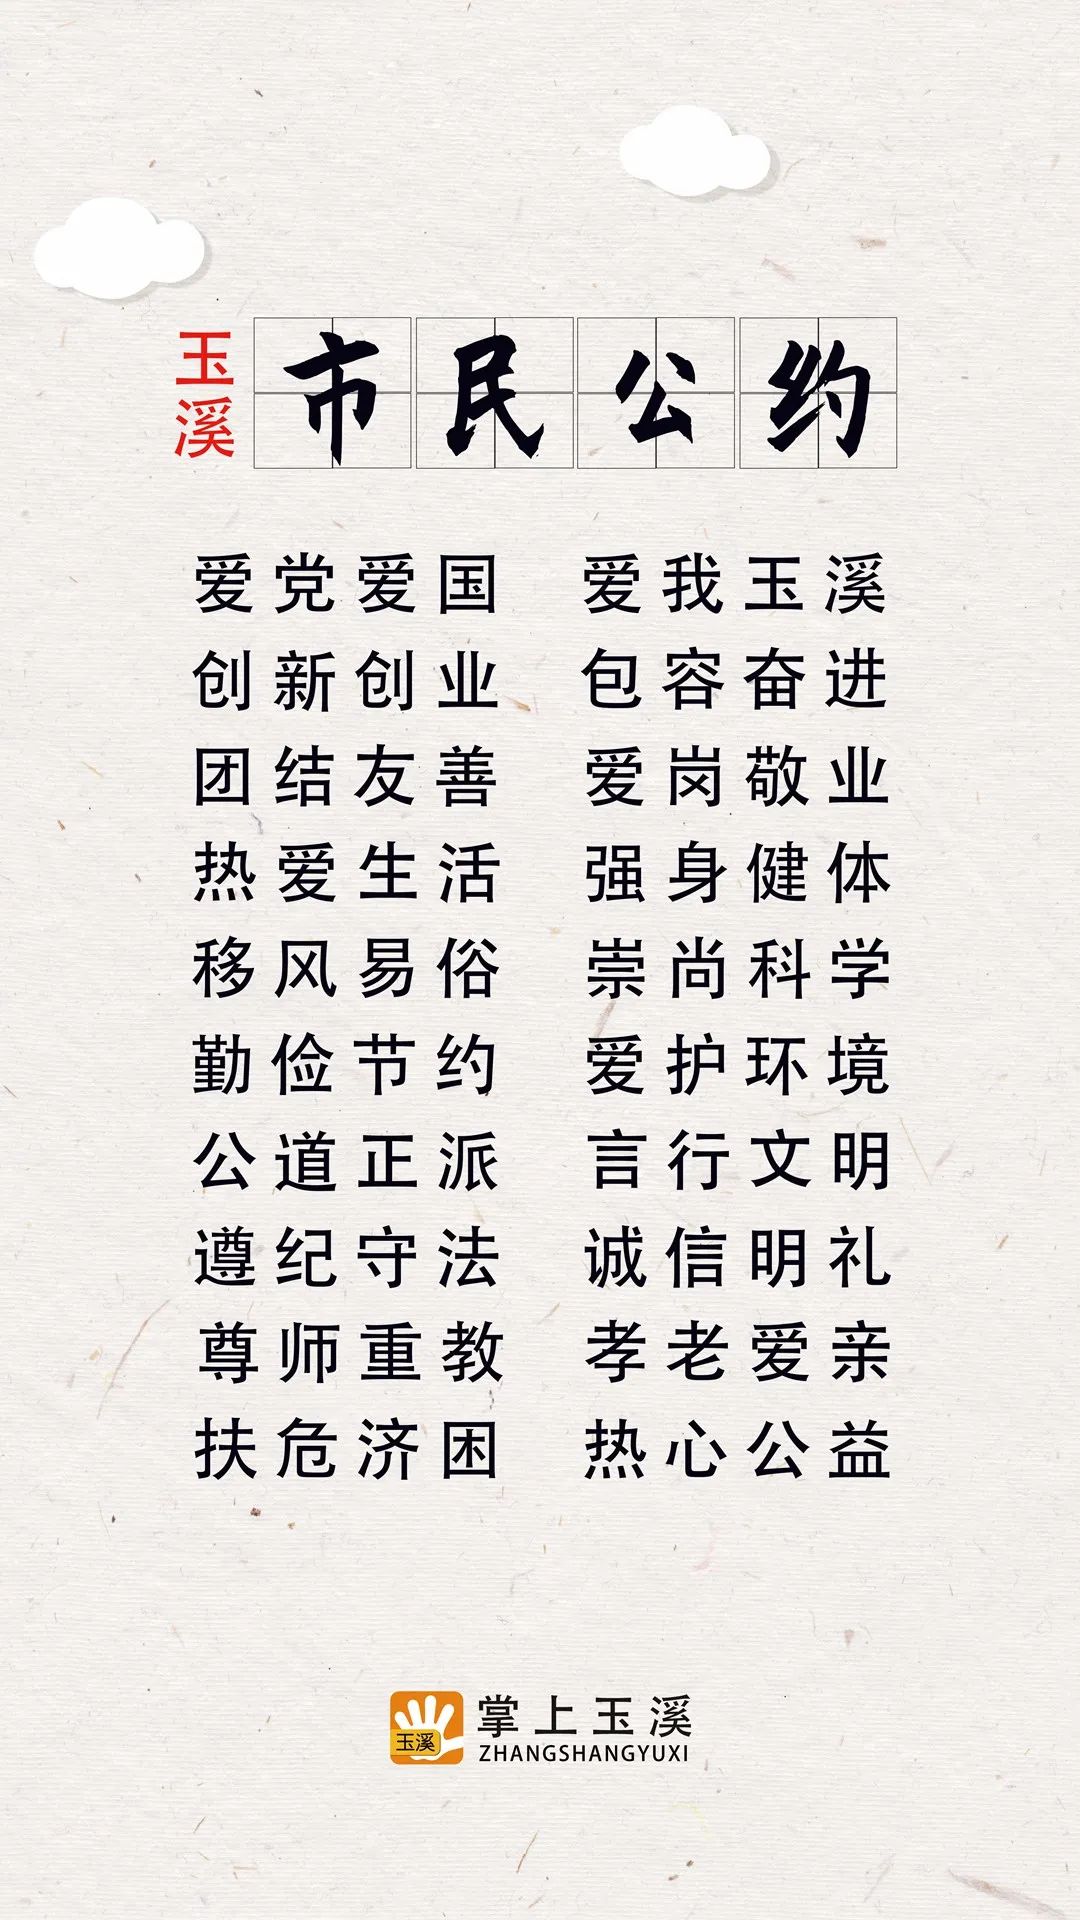 玉溪
市民公约
爱党爱国 爱我玉溪
创新创业 包容奋进
团结友善 爱岗敬业
热爱生活 强身健体
移风易俗 崇尚科学
勤俭节约 爱护环境
公道正派 言行文明
遵纪守法 诚信明礼
尊师重教 孝老爱亲
扶危济困 热心公益
玉溪
掌上玉溪
ZHANGSHANGYUXI